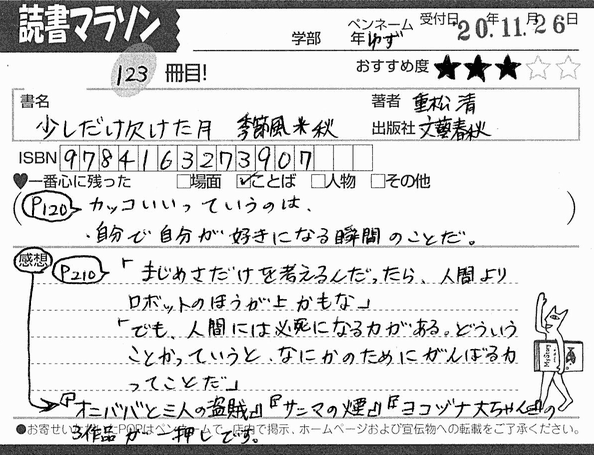 読書マラソン
学部 年 ペンネーム ゆず 受付日 '20年11月26日
123 冊目! おすすめ度 ★★★☆☆
書名 著者 重松清
少しだけ欠けた月 季節風*秋 出版社 文藝春秋
ISBN 9784163273907
♥一番心に残った □場面 ☑ことば □人物 □その他
(P120 カッコいいっていうのは、
・自分で自分が好きになる瞬間のことだ。)
感想 P210 「まじめさだけを考えるんだったら、人間より
ロボットのほうが上かもな」
「でも、人間には必死になる力がある。どういう
ことかっていうと、なにかのためにがんばる力
ってことだ」
→『オニババと三人の盗賊』『サンマの煙』『ヨコヅナ大ちゃん』の
●お寄せいただいたPOPはペンネームで、店内で掲示、ホームページおよび宣伝物への転載をご了承ください。
3作品が一押しです。